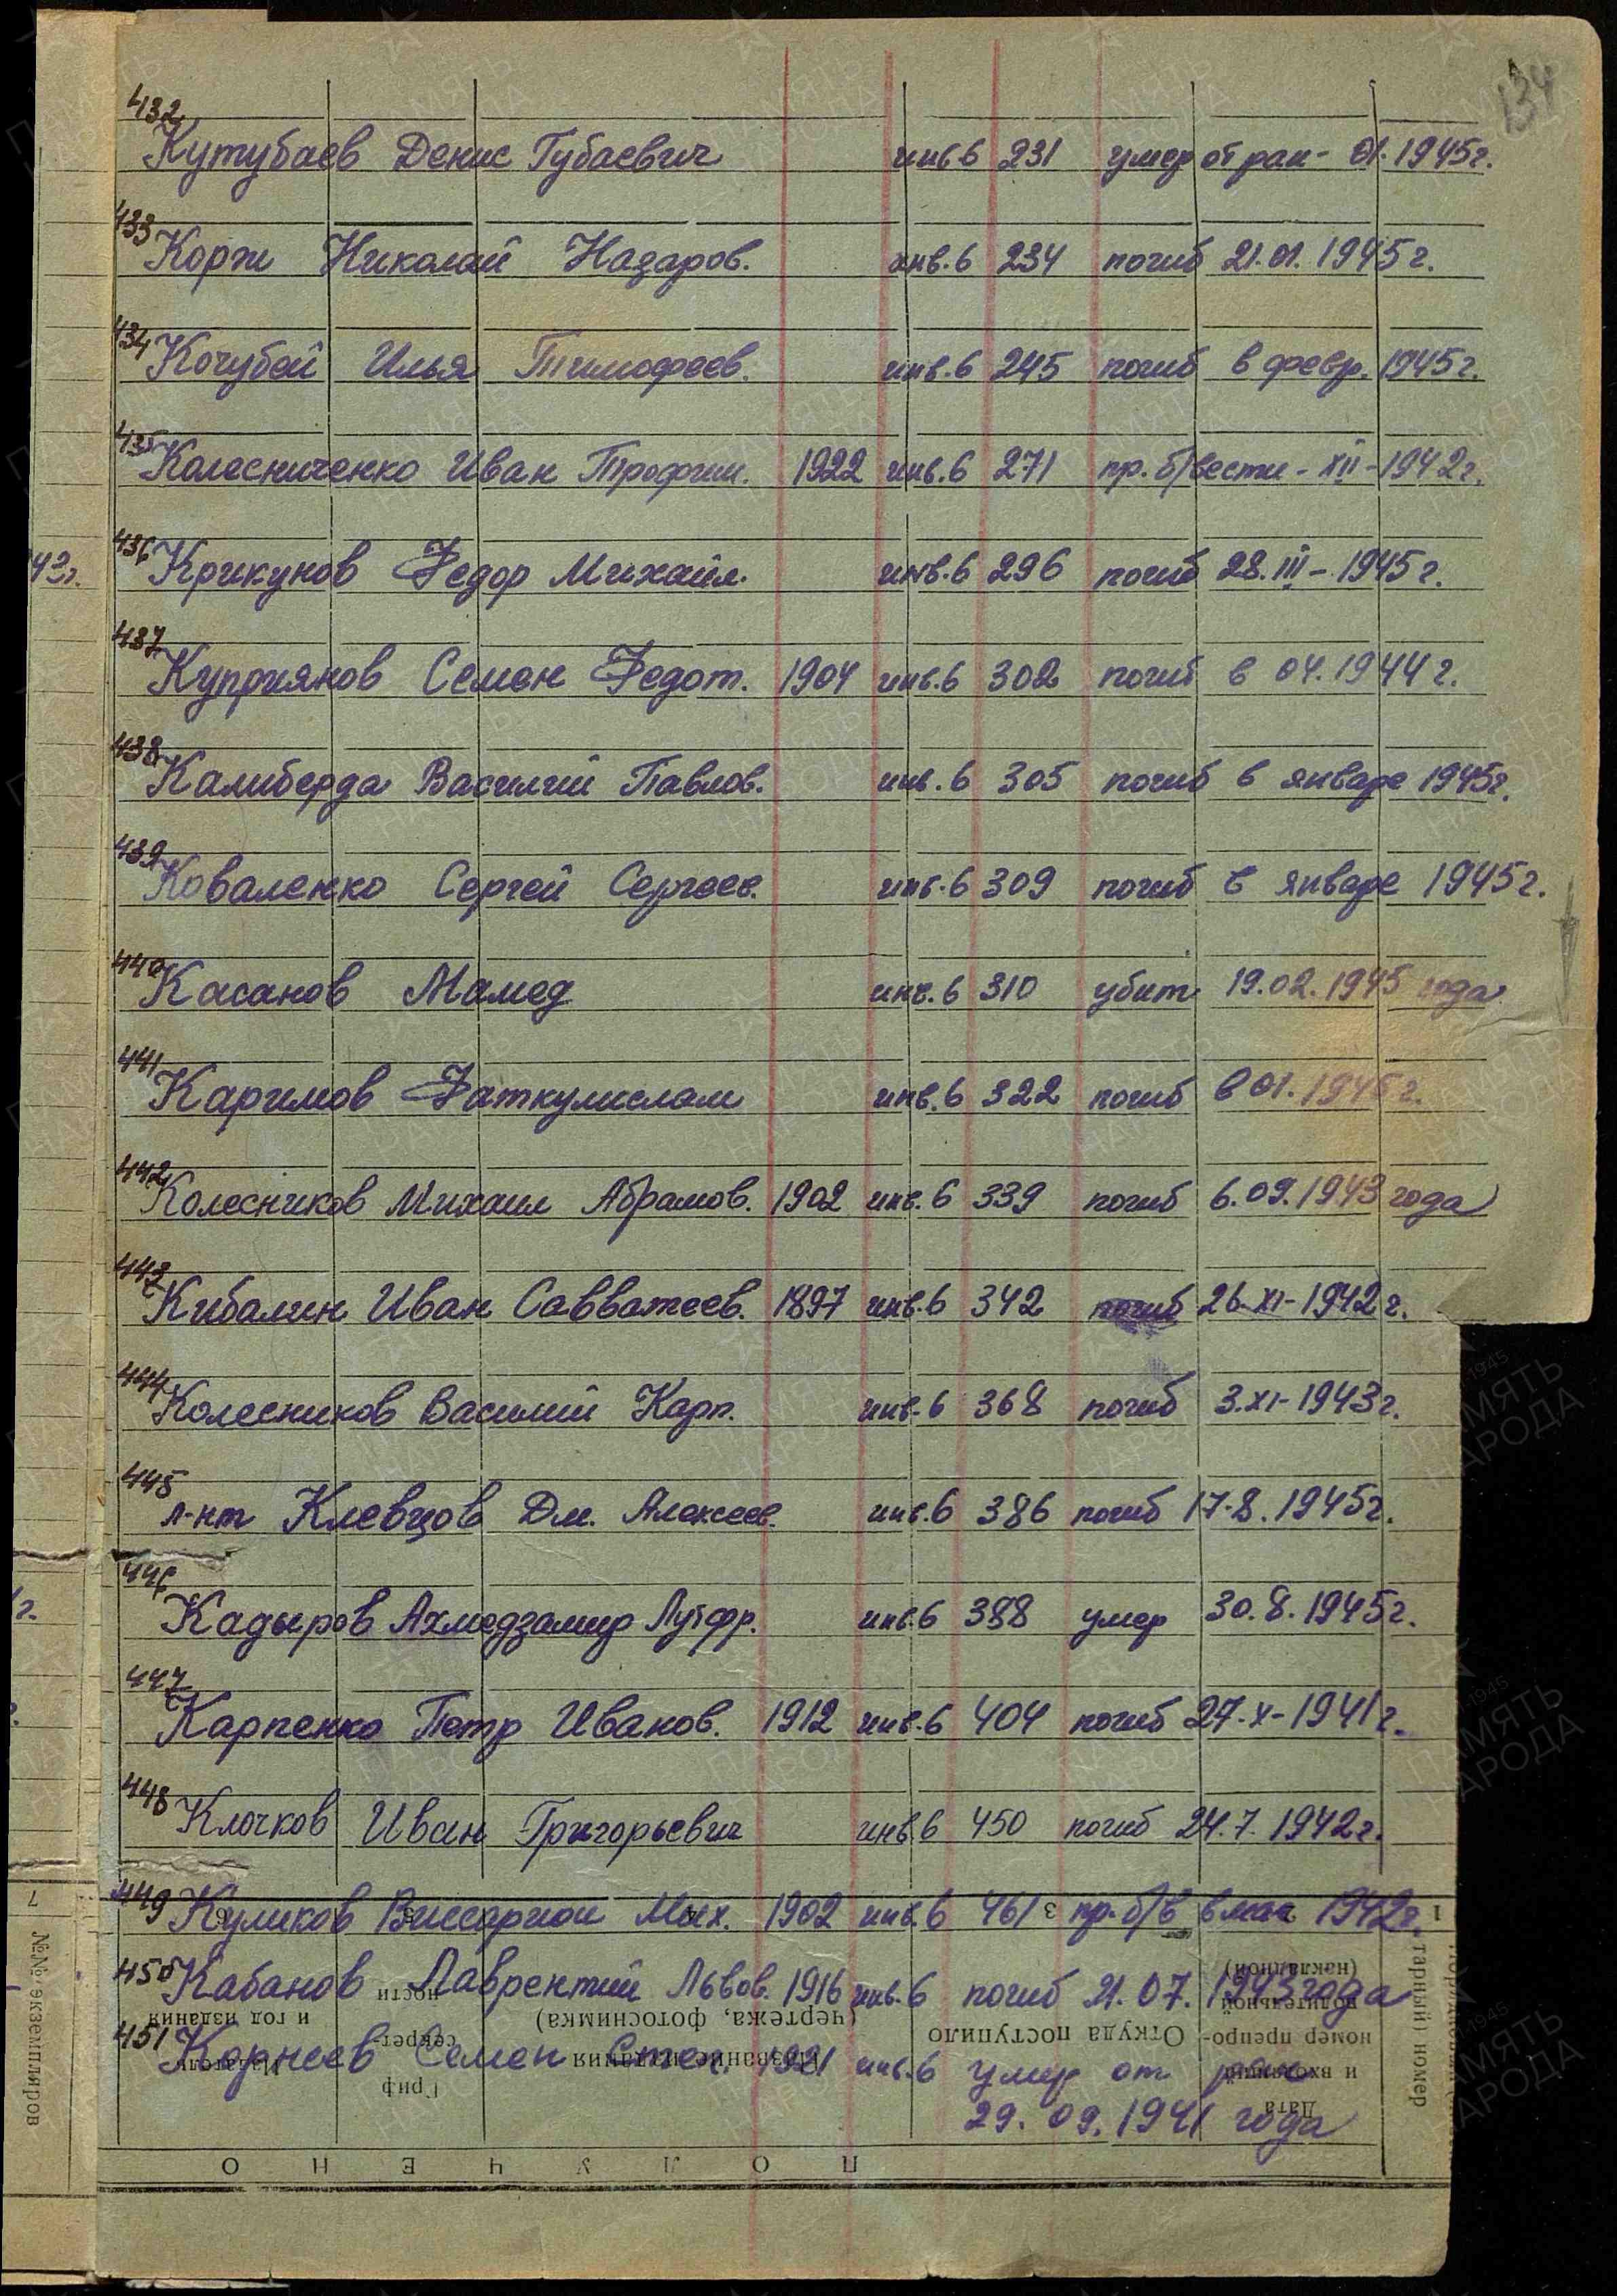 134
432 Кутубаев Денис Губаевич инв 6 231 умер от ран - 01.1945г.
433 Корж Николай Назаров. инв. 6 234 погиб 21.01.1945г.
434 Кочубей Илья Тимофеев. инв. 6 245 погиб в февр. 1945г.
435 Колесниченко Иван Трофим. 1922 инв. 6 271 пр. б/вести - XII - 1942г.
42г.
436 Крикунов Федор Михайл. инв. 6 296 погиб 28. III - 1945г.
437 Куприянов Семен Федот. 1904 инв. 6 302 погиб в 04.1944г.
438 Калиберда Василий Павлов. инв. 6 305 погиб в январе 1945г.
439 Коваленко Сергей Сергеев. инв. 6 309 погиб в январе 1945г.
440 Касанов Мамед инв. 6 310 убит 19.02.1945 года
441 Каримов Фаткулислам инв. 6 322 погиб в 01.1945г.
442 Колесников Михаил Абрамов. 1902 инв. 6 339 погиб 6.09.1943 года
443 Кибалин Иван Савватеев. 1897 инв. 6 342 погиб 26-XI-1942г.
444 Колесников Василий Карп. инв. 6 368 погиб 3.XI-1943г.
445 л-нт Клевцов Дм. Алексеев. инв. 6 386 погиб 17-8.1945г.
446 Кадыров Ахмедзамир Лутфр. инв. 6 388 умер 30.8.1945г.
447 Карпенко Петр Иванов. 1912 инв. 6 404 погиб 27-X-1941г.
448 Клочков Иван Григорьевич инв 6 450 погиб 24.7.1942г.
449 Куликов Виссарион Мих. 1902 инв. 6 461 пр. б/в в мае 1942г.
450 Кабанов Лаврентий Львов. 1916 инв. 6 погиб 21.07.1943 года
451 Корнеев Семен Степ. 1921 инв. 6 умер от ран
29.09.1941 года
ПОЛУЧЕНО
Дата и входящий номер препроводительной (накладной)
Откуда поступило
Название издания (чертежа, фотоснимка)
Гриф секретности
Издатель и год издания
№№ экземпляров
1 2 3 4 5 6 7